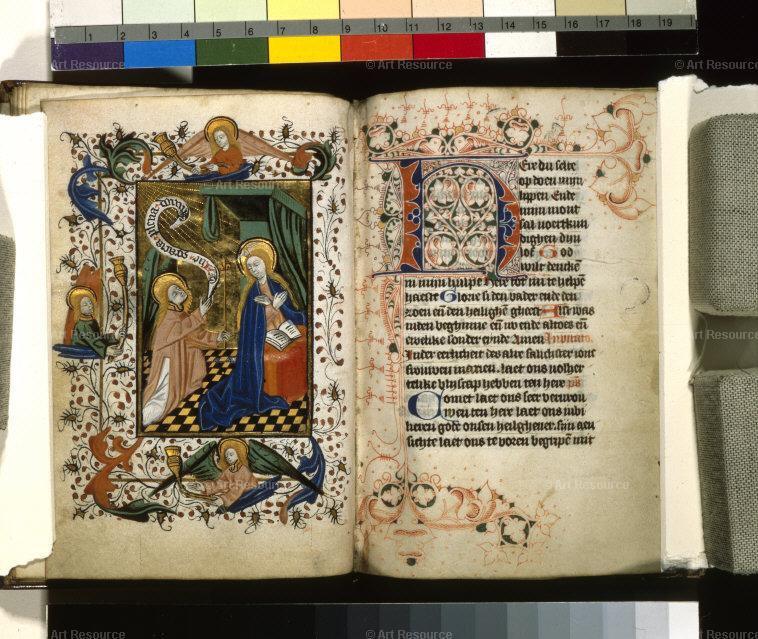 1 2 3 4 5 6 7 8 9 10 11 12 13 14 15 16 17 18 19
© Art Resource
© Art Resource
© Art Resource
Aue gracia plena
Ere du selte
op doen mijn
lippen Ende
mijn mont
sal voertkun
dighen dijn
lof God
wilt dencken
in mijn hulpe Here tot mi te helpē
haeste Glorie si den vader ende den
zoen eñ den heilighē gheest Alst was
inden beghinne eñ nv ende altoes eñ
ewelike sonder einde Amen
In der eerlicheit der alre salichster ionc
frouwen marien laet ons
like bliscap hebben ten here ps
Comet laet ons seer verurou
wen ten here laet ons iubi
lieren gode onsen
sichte laet ons te voren begripē mit
Art Resource
Art Resource
Art Resource